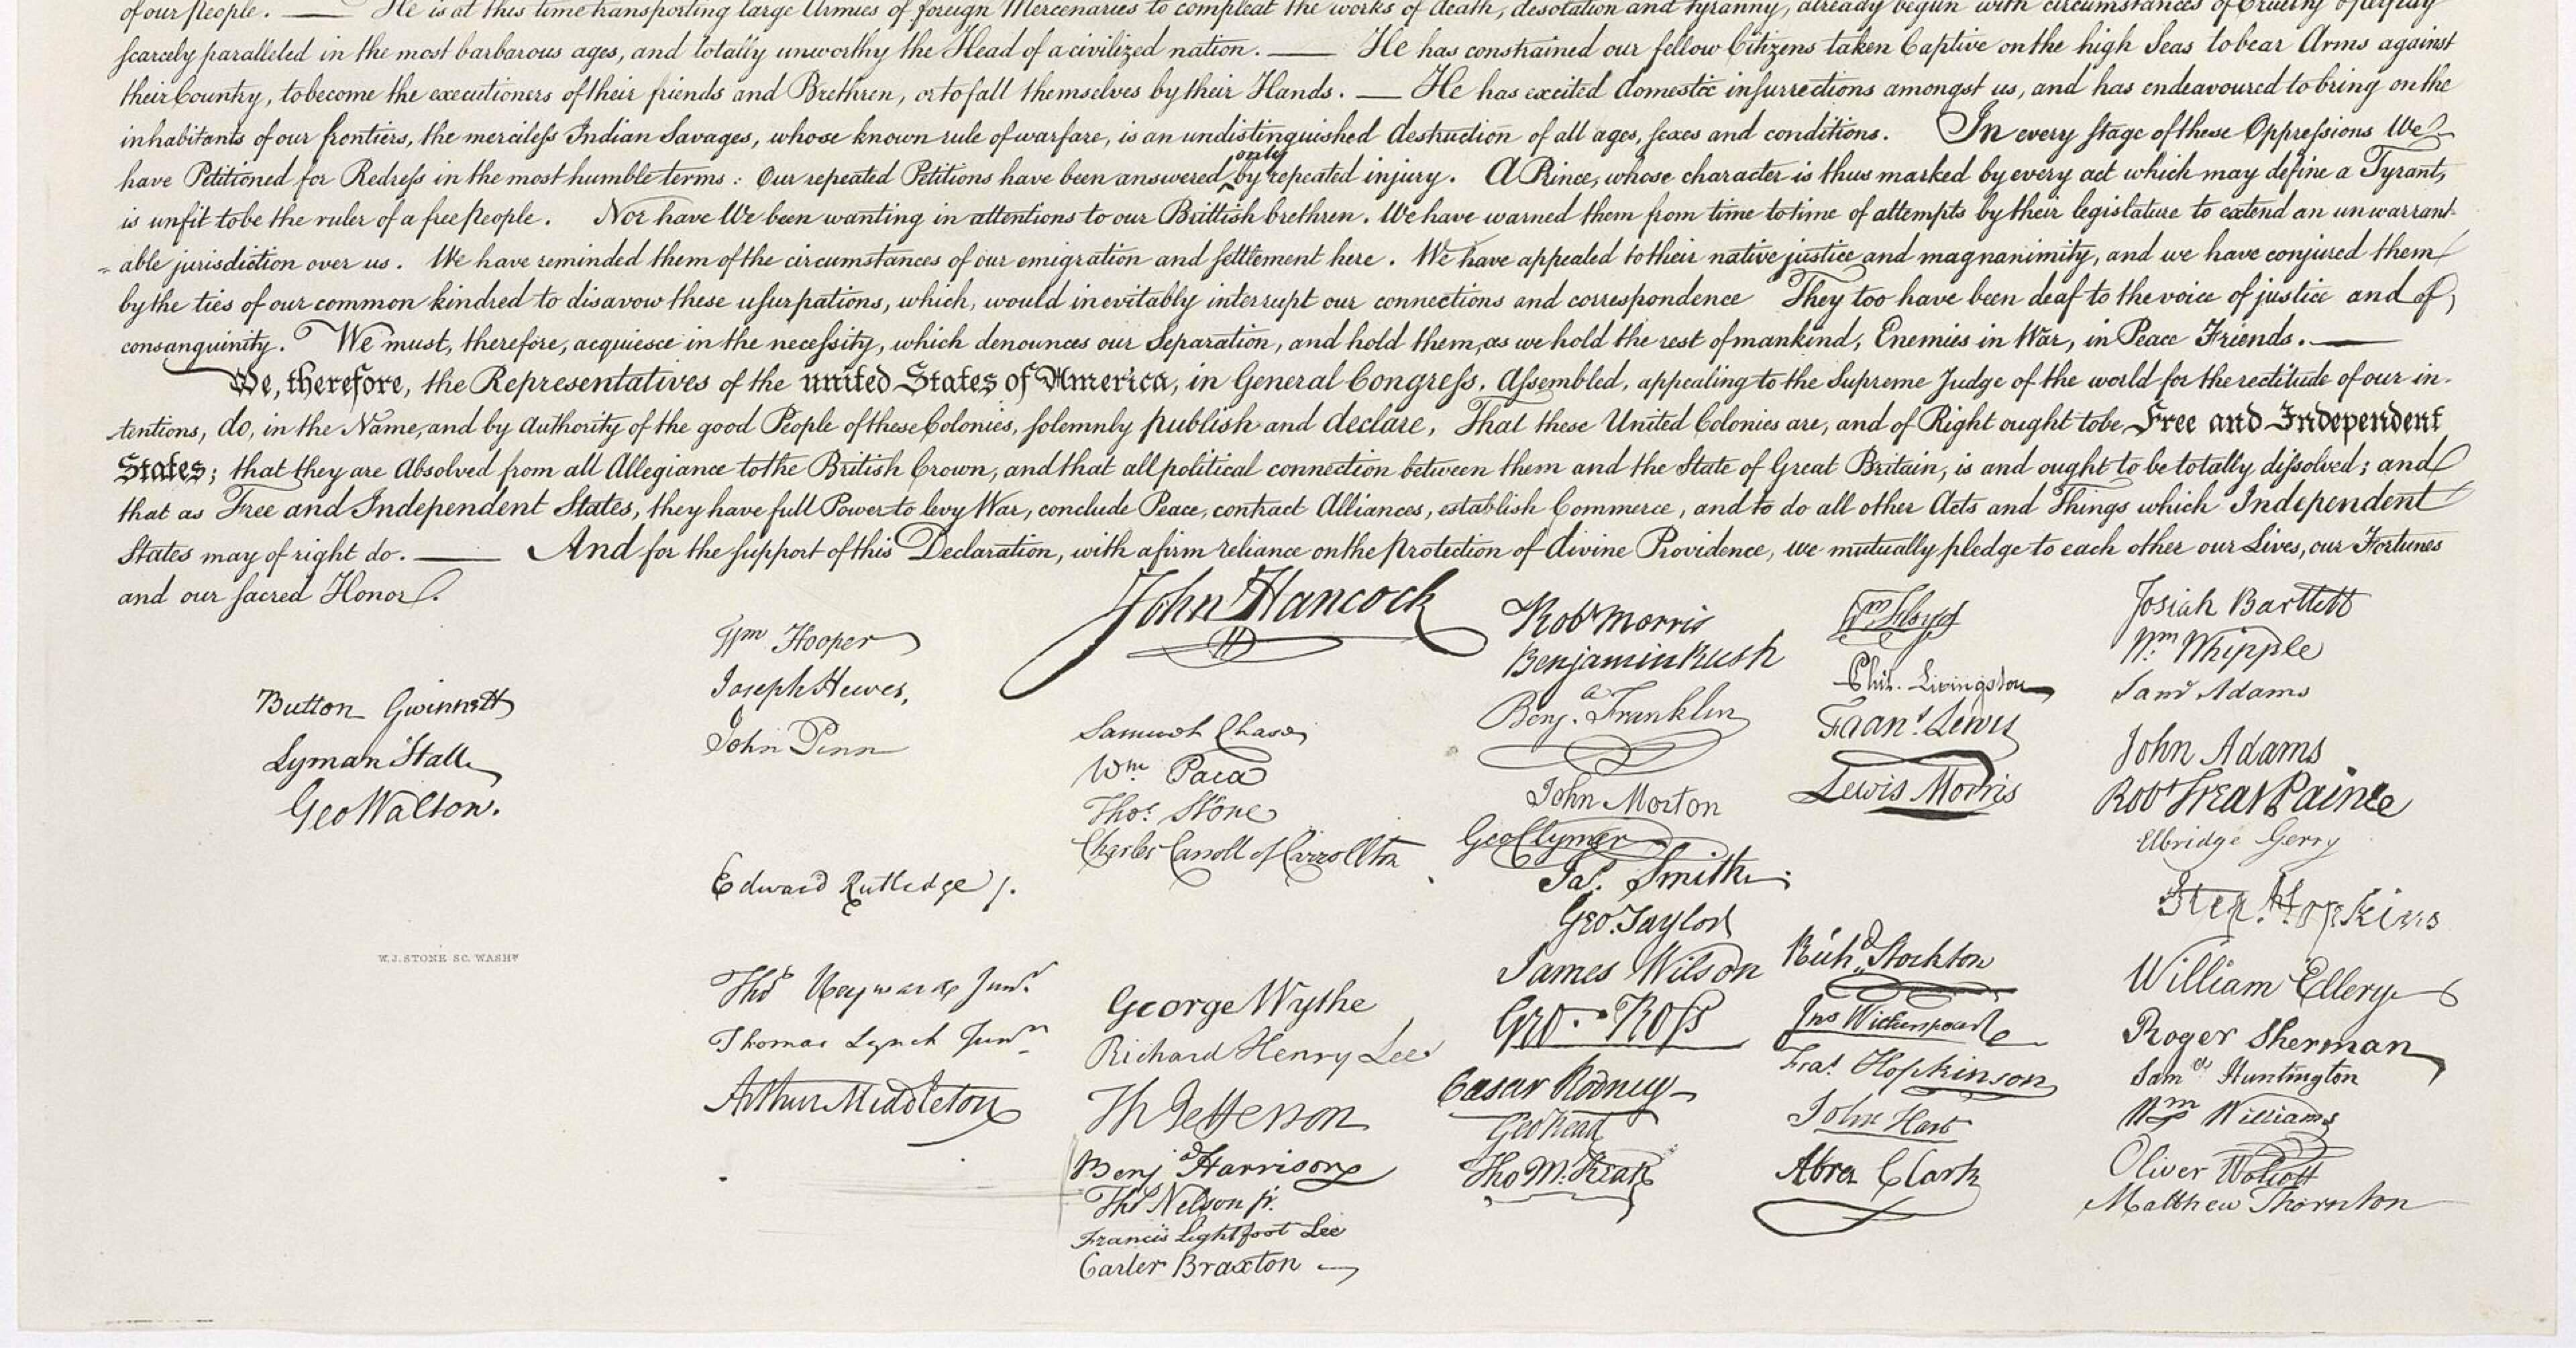 of our People. — He is at this time transporting large Armies of foreign Mercenaries to compleat the works of death, desolation and tyranny, already begun with circumstances of Cruelty & perfidy
scarcely paralleled in the most barbarous ages, and totally unworthy the Head of a civilized nation. — He has constrained our fellow Citizens taken Captive on the high Seas to bear Arms against
their Country, to become the executioners of their friends and Brethren, or to fall themselves by their Hands. — He has excited domestic insurrections amongst us, and has endeavoured to bring on the
inhabitants of our frontiers, the merciless Indian Savages, whose known rule of warfare, is an undistinguished destruction of all ages, sexes and conditions. In every stage of these Oppressions We
have Petitioned for Redress in the most humble terms: Our repeated Petitions have been answered only by repeated injury. A Prince, whose character is thus marked by every act which may define a Tyrant,
is unfit to be the ruler of a free People. Nor have We been wanting in attentions to our Brittish brethren. We have warned them from time to time of attempts by their legislature to extend an unwarrant-
=able jurisdiction over us. We have reminded them of the circumstances of our emigration and settlement here. We have appealed to their native justice and magnanimity, and we have conjured them
by the ties of our common kindred to disavow these usurpations, which, would inevitably interrupt our connections and correspondence They too have been deaf to the voice of justice and of
consanguinity. We must, therefore, acquiesce in the necessity, which denounces our Separation, and hold them, as we hold the rest of mankind, Enemies in War, in Peace Friends. —
We, therefore, the Representatives of the united States of America, in General Congress, Assembled, appealing to the Supreme Judge of the world for the rectitude of our in-
tentions, do, in the Name, and by Authority of the good People of these Colonies, solemnly publish and declare, That these United Colonies are, and of Right ought to be Free and Independent
States; that they are Absolved from all Allegiance to the British Crown, and that all political connection between them and the State of Great Britain, is and ought to be totally dissolved; and
that as Free and Independent States, they have full Power to levy War, conclude Peace, contract Alliances, establish Commerce, and to do all other Acts and Things which Independent
States may of right do. — And for the support of this Declaration, with a firm reliance on the protection of divine Providence, we mutually pledge to each other our Lives, our Fortunes
and our sacred Honor.
Button Gwinnett
Lyman Hall
Geo Walton.
W. J. STONE SC. WASHN
Wm Hooper
Joseph Hewes,
John Penn
Edward Rutledge /.
Thos Heyward Junr.
Thomas Lynch Junr
Arthur Middleton
John Hancock
Samuel Chase
Wm. Paca
Thos. Stone
Charles Carroll of Carrollton
George Wythe
Richard Henry Lee
Th Jefferson
Benja Harrison
Thos Nelson jr.
Francis Lightfoot Lee
Carter Braxton
Robt Morris
Benjamin Rush
Benja. Franklin
John Morton
Geo Clymer
Jas. Smith.
Geo. Taylor
James Wilson
Geo. Ross
Caesar Rodney
Geo Read
Tho M:Kean
Wm Floyd
Phil. Livingston
Frans. Lewis
Lewis Morris
Richd. Stockton
Jno Witherspoon
Fras. Hopkinson
John Hart
Abra Clark
Josiah Bartlett
Wm. Whipple
Saml Adams
John Adams
Robt Treat Paine
Elbridge Gerry
Step. Hopkins
William Ellery
Roger Sherman
Saml Huntington
Wm Williams
Oliver Wolcott
Matthew Thornton